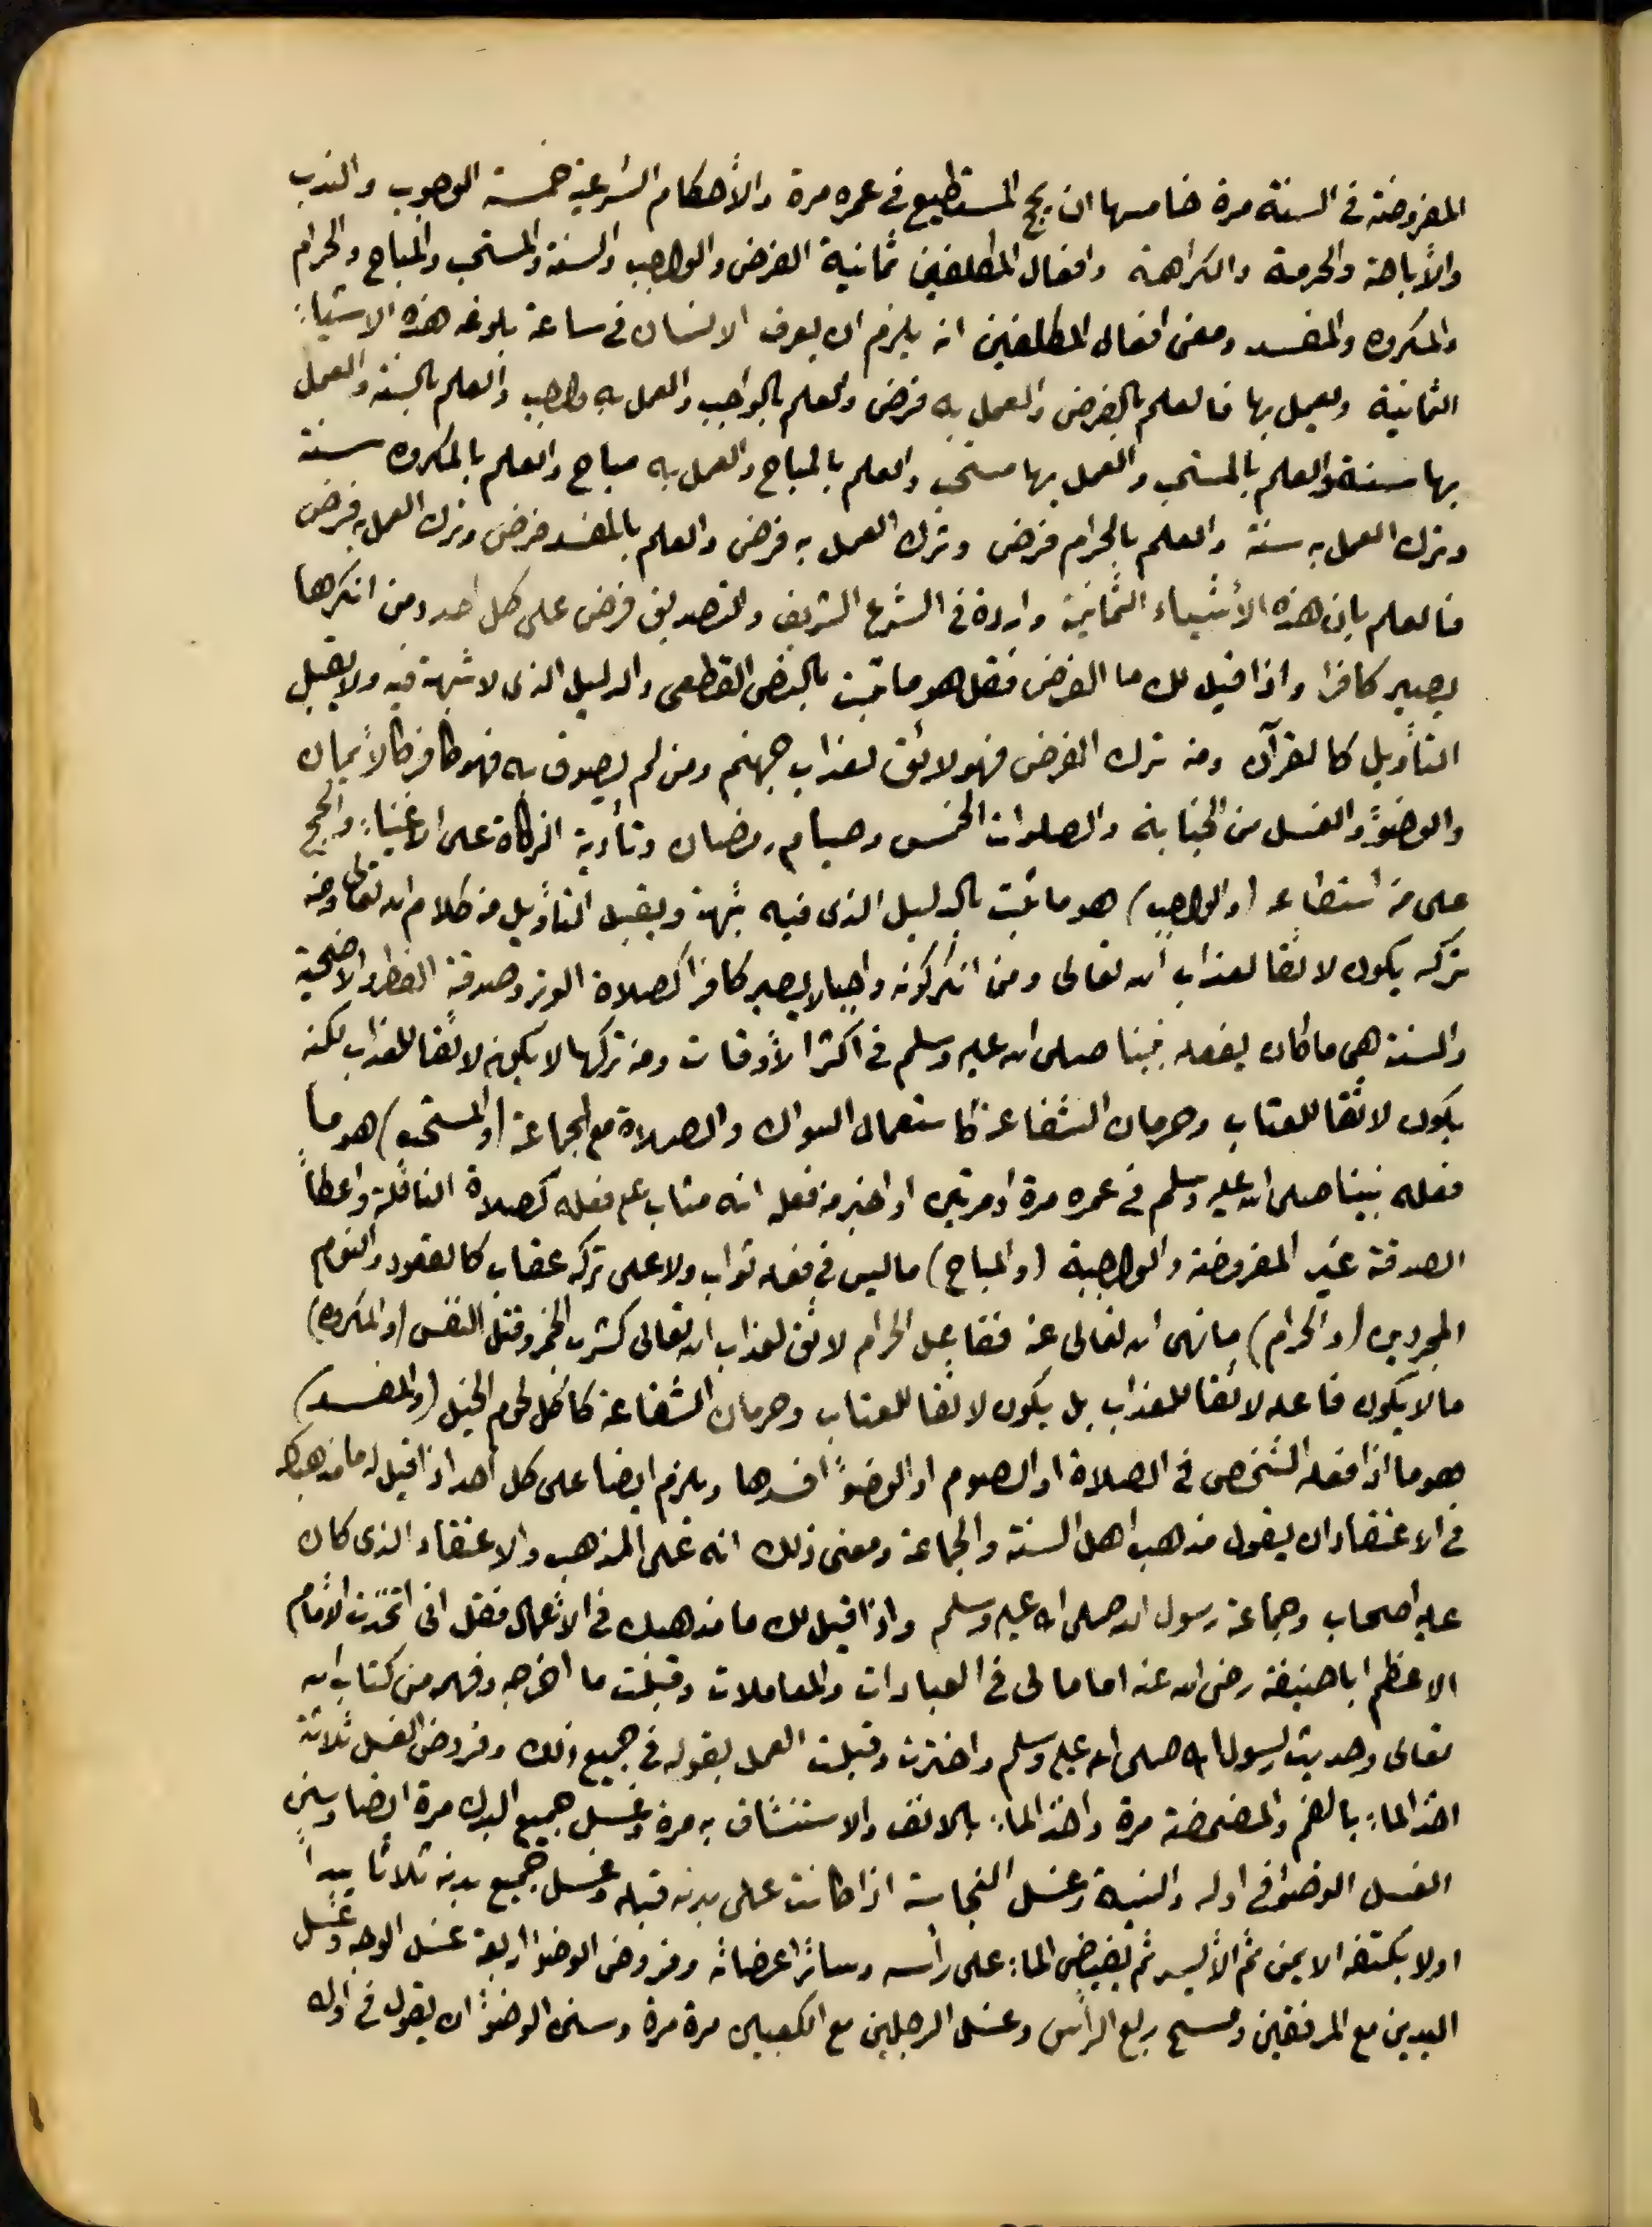 المفروضة في السنة مرة خامسها ان يحج المستطيع في عمره مرة والأحكام الشرعية خمسة الوجوب والندب
والأباحة والحرمة والكراهة وافعال المكلفين ثمانية الفرض والواجب والسنة والمستحب والمباح والحرام
والمكروه والمفسد ومعنى افعال المكلفين انه يلزم ان يعرف الانسان في ساعة بلوغه هذه الاشياء
الثمانية ويعمل بها فالعلم بالفرض والعمل به فرض والعلم بالواجب والعمل به واجب والعلم بالسنة والعمل
بها سنة والعلم بالمستحب والعمل بها مستحب والعلم بالمباح والعمل به مباح والعلم بالمكروه سنة
وترك العمل به سنة والعلم بالحرام فرض وترك العمل به فرض والعلم بالمفسد فرض وترك العمل به فرض
فالعلم بان هذه الأشياء الثمانية واردة في الشرع الشريف والتصديق فرض على كل احد ومن انكرها
يصير كافرا واذا قيل لك ما الفرض فقل هو ما ثبت بالنص القطعي والدليل الذى لا شبهة فيه ولا يقبل
التأويل كالقرآن ومن ترك الفرض فهو لائق لعذاب جهنم ومن لم يصدق به فهو كافر كالأيمان
والوضوء والغسل من الجنابة والصلوات الخمس وصيام رمضان وتأدية الزكاة على الاغنياء والحج
على من استطاع (والواجب) هو ما ثبت بالدليل الذى فيه شبهة ويقبل التأويل من كلام الله تعالى ومن
تركه يكون لائقا لعذاب الله تعالى ومن انكر كونه واجبا لا يصير كافرا كصلاة الوتر وصدقة الفطر والاضحية
والسنة هي ما كان يفعله نبينا صلى الله عليه وسلم في اكثر الأوقات ومن تركها لا يكون لائقا للعذاب لكنه
يكون لائقا للعتاب وحرمان الشفاعة كاستعمال السواك والصلاة مع الجماعة (والمستحب) هو ما
فعله نبينا صلى الله عليه وسلم في عمره مرة او مرتين او اخبر من فعله انه مثاب على فعله كصلاة النافلة واعطأ
الصدقة غير المفروضة والواجبة (والمباح) ما ليس في فعله ثواب ولا على تركه عقاب كالقعود والنوم
المجردين (والحرام) ما نهى الله تعالى عنه ففاعل الحرام لائق لعذاب الله تعالى كشرب الخمر وقتل النفس (والمكروه)
ما لا يكون فاعله لائقا للعذاب بل يكون لائقا للعتاب وحرمان الشفاعة كاكل لحوم الخيل (والمفسد)
هو ما اذا فعله الشخص في الصلاة او الصوم او الوضوء افسدها ويلزم ايضا على كل احد اذا قيل له ما مذهبك
في الاعتقاد ان يقول مذهب اهل السنة والجماعة ومعنى ذلك انه على المذهب والاعتقاد الذى كان
عليه اصحاب وجماعة رسول الله صلى الله عليه وسلم واذا قيل لك ما مذهبك في الاعمال فقل انى اتخذت الامام
الاعظم ابا حنيفة رضى الله عنه اماما لى في العبادات والمعاملات وقبلت ما اخرجه وفهمه من كتاب الله
تعالى وحديث رسول الله صلى الله عليه وسلم واخترت وقبلت العمل بقوله في جميع ذلك وفروض الغسل ثلاثة
اخذ الماء بالفم والمضمضة مرة واخذ الماء بالانف والاستنشاق به مرة وغسل جميع البدن مرة ايضا وسنن
الغسل الوضوء في اوله والنية وغسل النجاسة اذا كانت على بدنه قبله وغسل جميع بدنه ثلاثا يبدأ
اولا بكتفه الايمن ثم الأيسر ثم يفيض الماء على رأسه وسائر اعضائه وفروض الوضوء اربعة غسل الوجه وغسل
اليدين مع المرفقين ومسح ربع الرأس وغسل الرجلين مع الكعبين مرة مرة وسنن الوضوء ان يقول في اوله